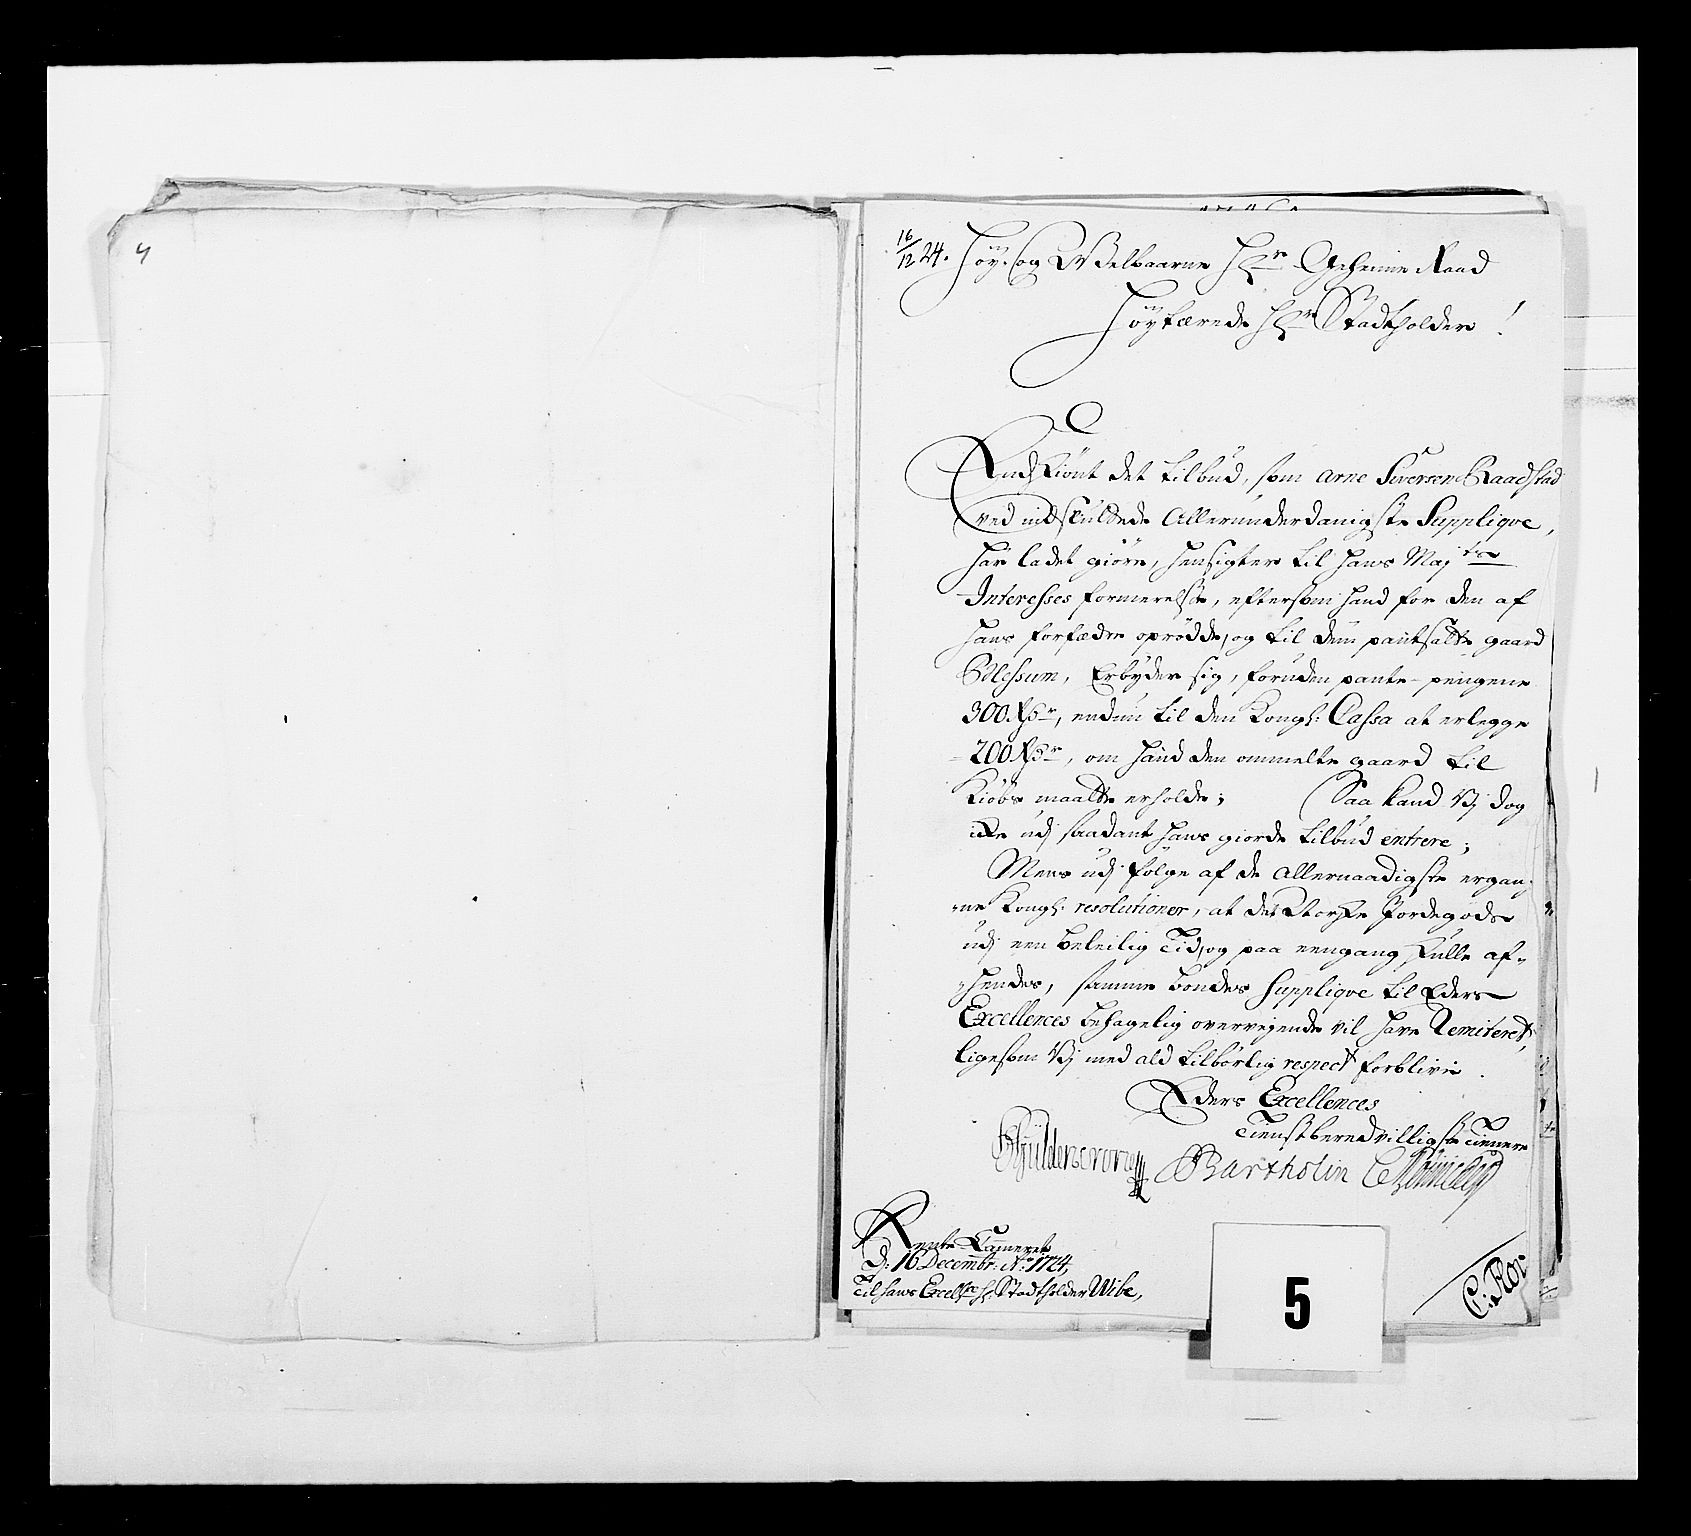 4
16/12 24. Høy- og Welbaarne Hr Geheime Raad
Høytærede Hr Stadtholder!
Endskiønt det tilbud, som Arne Siversen Raadstad
ved indskuldede Allerunderdanigste Supplique,
har ladet giøre, hensigter til Hans Mayts
Interesses formerelse, eftersom hand for den af
hans forfædre oprødde, og til dem pantsatte gaard
Blessum, Erbyder sig, foruden pante-pengene
300 Rdr, endnu til den Kongl: Cassa at erlegge
200 Rdr, om hand den ommelte gaard til
Kiøbs maatte erholde; Saa kand Vj dog
icke udj saadant hans giorde tilbud entrere;
Mens udj følge af de allernaadigste ergan-
ne Kongl: resolutioner, at det Norske Jordegods
udj een beleilig Tid, og paa eengang skulle af-
hendes, samme bondes Supplique til Eders
Excellences behagelig overvejende vil have Remiteret,
ligesom Vj med ald tilbørlig respect forblive.
Eders Excellences
Tienstberedvilligste Tienere
Gyldencrone Bartholin
Rente Cammeret
d: 16 Decembr: Ao 1724,
Til hans Excellce Hr Stadtholder Wibe,
5